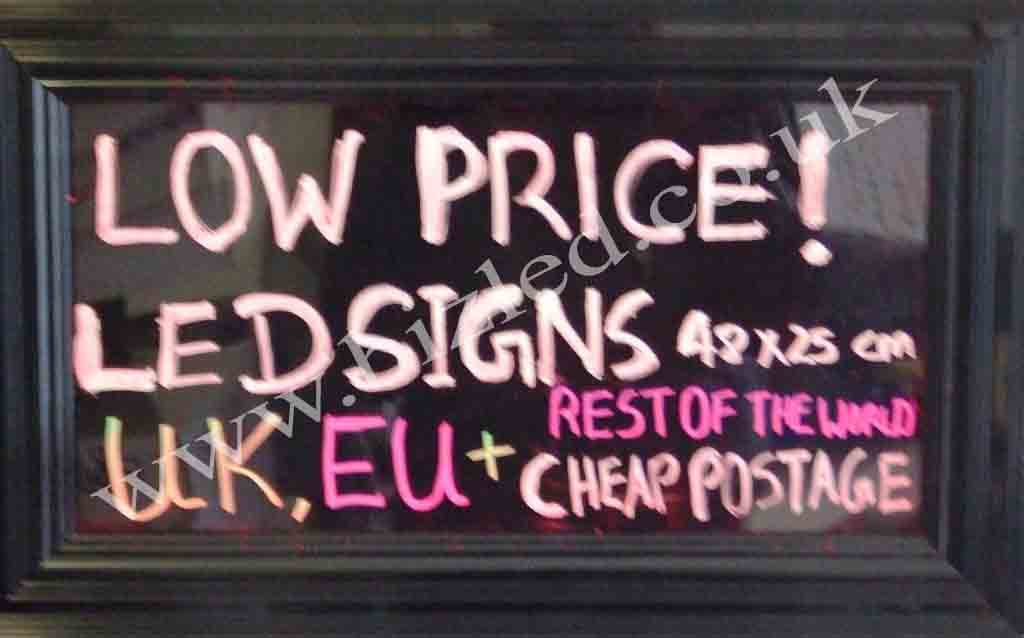 LOW PRICE!
LED SIGNS 48x25 cm
UK, EU + REST OF THE WORLD
CHEAP POSTAGE
www.bizled.co.uk